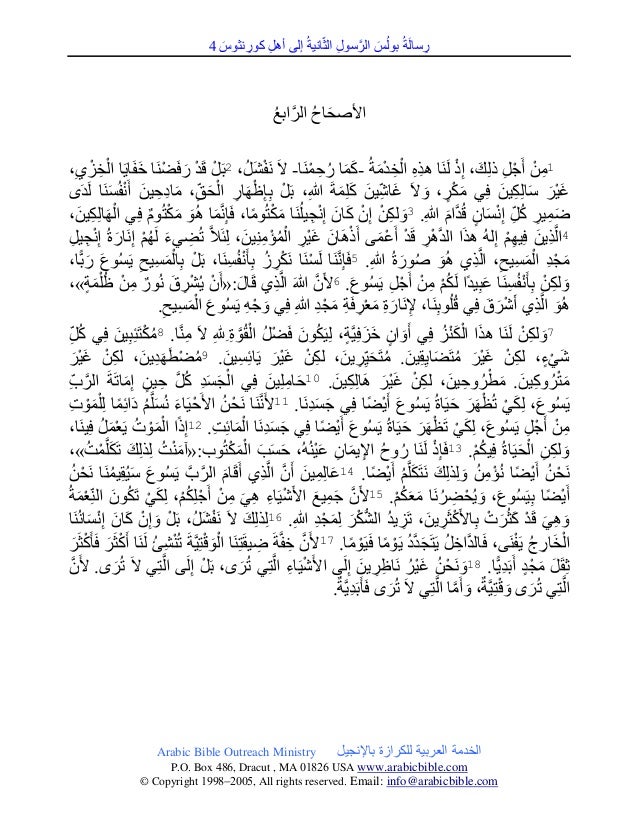 رِسالَةُ بولُسَ الرَّسولِ الثّانيةُ إلى أهلِ كورِنثوسَ 4
الأصحَاحُ الرَّابعُ
1مِنْ أَجْلِ ذلِكَ، إِذْ لَنَا هذِهِ الْخِدْمَةُ -كَمَا رُحِمْنَا- لاَ نَفْشَلُ، 2بَلْ قَدْ رَفَضْنَا خَفَايَا الْخِزْيِ،
غَيْرَ سَالِكِينَ فِي مَكْرٍ، وَلاَ غَاشِّينَ كَلِمَةَ اللهِ، بَلْ بِإِظْهَارِ الْحَقِّ، مَادِحِينَ أَنْفُسَنَا لَدَى
ضَمِيرِ كُلِّ إِنْسَانٍ قُدَّامَ اللهِ. 3وَلكِنْ إِنْ كَانَ إِنْجِيلُنَا مَكْتُومًا، فَإِنَّمَا هُوَ مَكْتُومٌ فِي الْهَالِكِينَ،
4الَّذِينَ فِيهِمْ إِلهُ هذَا الدَّهْرِ قَدْ أَعْمَى أَذْهَانَ غَيْرِ الْمُؤْمِنِينَ، لِئَلاَّ تُضِيءَ لَهُمْ إِنَارَةُ إِنْجِيلِ
مَجْدِ الْمَسِيحِ، الَّذِي هُوَ صُورَةُ اللهِ. 5فَإِنَّنَا لَسْنَا نَكْرِزُ بِأَنْفُسِنَا، بَلْ بِالْمَسِيحِ يَسُوعَ رَبًّا،
وَلكِنْ بِأَنْفُسِنَا عَبِيدًا لَكُمْ مِنْ أَجْلِ يَسُوعَ. 6لأَنَّ اللهَ الَّذِي قَالَ:»أَنْ يُشْرِقَ نُورٌ مِنْ ظُلْمَةٍ«،
هُوَ الَّذِي أَشْرَقَ فِي قُلُوبِنَا، لإِنَارَةِ مَعْرِفَةِ مَجْدِ اللهِ فِي وَجْهِ يَسُوعَ الْمَسِيحِ.
7وَلكِنْ لَنَا هذَا الْكَنْزُ فِي أَوَانٍ خَزَفِيَّةٍ، لِيَكُونَ فَضْلُ الْقُوَّةِ للهِ لاَ مِنَّا. 8مُكْتَئِبِينَ فِي كُلِّ
شَيْءٍ، لكِنْ غَيْرَ مُتَضَايِقِينَ. مُتَحَيِّرِينَ، لكِنْ غَيْرَ يَائِسِينَ. 9مُضْطَهَدِينَ، لكِنْ غَيْرَ
مَتْرُوكِينَ. مَطْرُوحِينَ، لكِنْ غَيْرَ هَالِكِينَ. 10حَامِلِينَ فِي الْجَسَدِ كُلَّ حِينٍ إِمَاتَةَ الرَّبِّ
يَسُوعَ، لِكَيْ تُظْهَرَ حَيَاةُ يَسُوعَ أَيْضًا فِي جَسَدِنَا. 11لأَنَّنَا نَحْنُ الأَحْيَاءَ نُسَلَّمُ دَائِمًا لِلْمَوْتِ
مِنْ أَجْلِ يَسُوعَ، لِكَيْ تَظْهَرَ حَيَاةُ يَسُوعَ أَيْضًا فِي جَسَدِنَا الْمَائِتِ. 12إِذًا الْمَوْتُ يَعْمَلُ فِينَا،
وَلكِنِ الْحَيَاةُ فِيكُمْ. 13فَإِذْ لَنَا رُوحُ الإِيمَانِ عَيْنُهُ، حَسَبَ الْمَكْتُوبِ:»آمَنْتُ لِذلِكَ تَكَلَّمْتُ«،
نَحْنُ أَيْضًا نُؤْمِنُ وَلِذلِكَ نَتَكَلَّمُ أَيْضًا. 14عَالِمِينَ أَنَّ الَّذِي أَقَامَ الرَّبَّ يَسُوعَ سَيُقِيمُنَا نَحْنُ
أَيْضًا بِيَسُوعَ، وَيُحْضِرُنَا مَعَكُمْ. 15لأَنَّ جَمِيعَ الأَشْيَاءِ هِيَ مِنْ أَجْلِكُمْ، لِكَيْ تَكُونَ النِّعْمَةُ
وَهِيَ قَدْ كَثُرَتْ بِالأَكْثَرِينَ، تَزِيدُ الشُّكْرَ لِمَجْدِ اللهِ. 16لِذلِكَ لاَ نَفْشَلُ، بَلْ وَإِنْ كَانَ إِنْسَانُنَا
الْخَارِجُ يَفْنَى، فَالدَّاخِلُ يَتَجَدَّدُ يَوْمًا فَيَوْمًا. 17لأَنَّ خِفَّةَ ضِيقَتِنَا الْوَقْتِيَّةَ تُنْشِئُ لَنَا أَكْثَرَ فَأَكْثَرَ
ثِقَلَ مَجْدٍ أَبَدِيًّا. 18وَنَحْنُ غَيْرُ نَاظِرِينَ إِلَى الأَشْيَاءِ الَّتِي تُرَى، بَلْ إِلَى الَّتِي لاَ تُرَى. لأَنَّ
الَّتِي تُرَى وَقْتِيَّةٌ، وَأَمَّا الَّتِي لاَ تُرَى فَأَبَدِيَّةٌ.
Arabic Bible Outreach Ministry الخدمة العربية للكرازة بالإنجيل
P.O. Box 486, Dracut , MA 01826 USA www.arabicbible.com
© Copyright 1998–2005, All rights reserved. Email: info@arabicbible.com